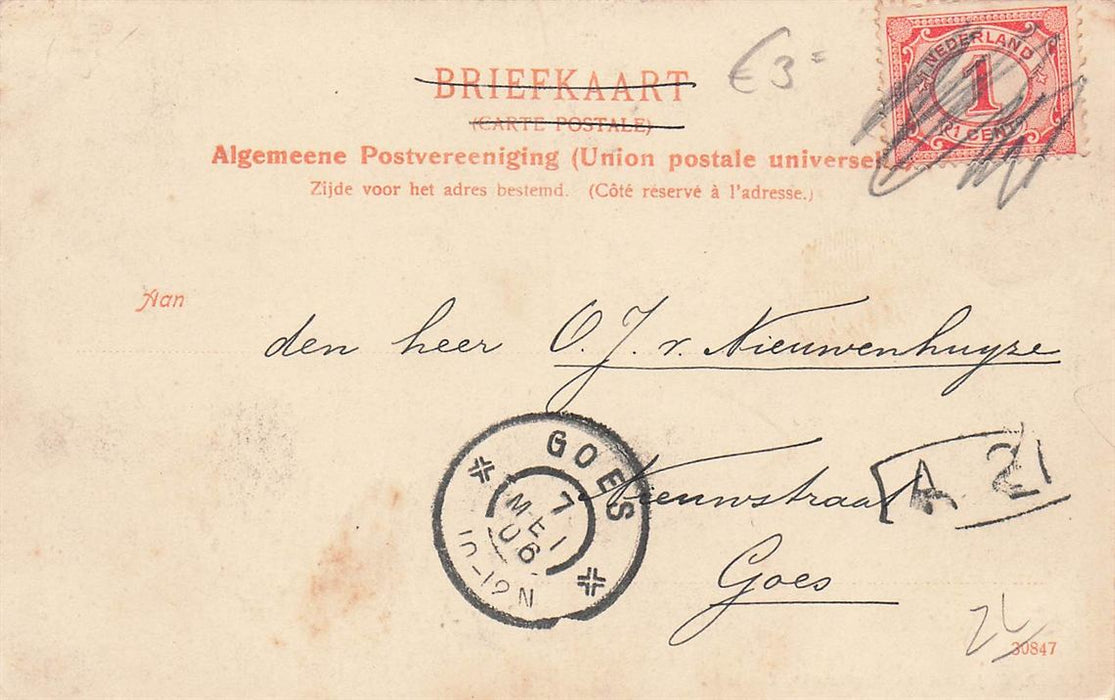 € 3 =
NEDERLAND
1
1 CENT
BRIEFKAART
(CARTE POSTALE)
Algemeene Postvereeniging (Union postale universe
Zijde voor het adres bestemd. (Côté réservé à l'adresse.)
Aan
den heer O. J. v. Nieuwenhuyze
Nieuwstraat A 21
Goes
GOES
7
MEI
06
10-12N
30847